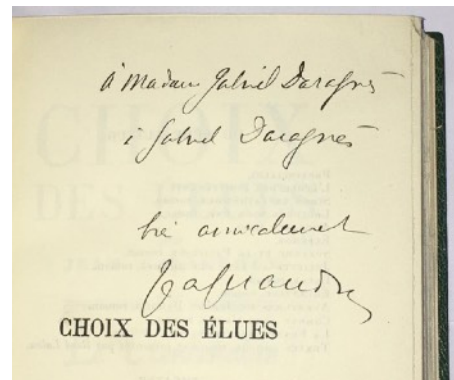 à Madame Gabriel Daragnès
à Gabriel Daragnès
très amicalement
Jean Giraudoux
CHOIX DES ÉLUES